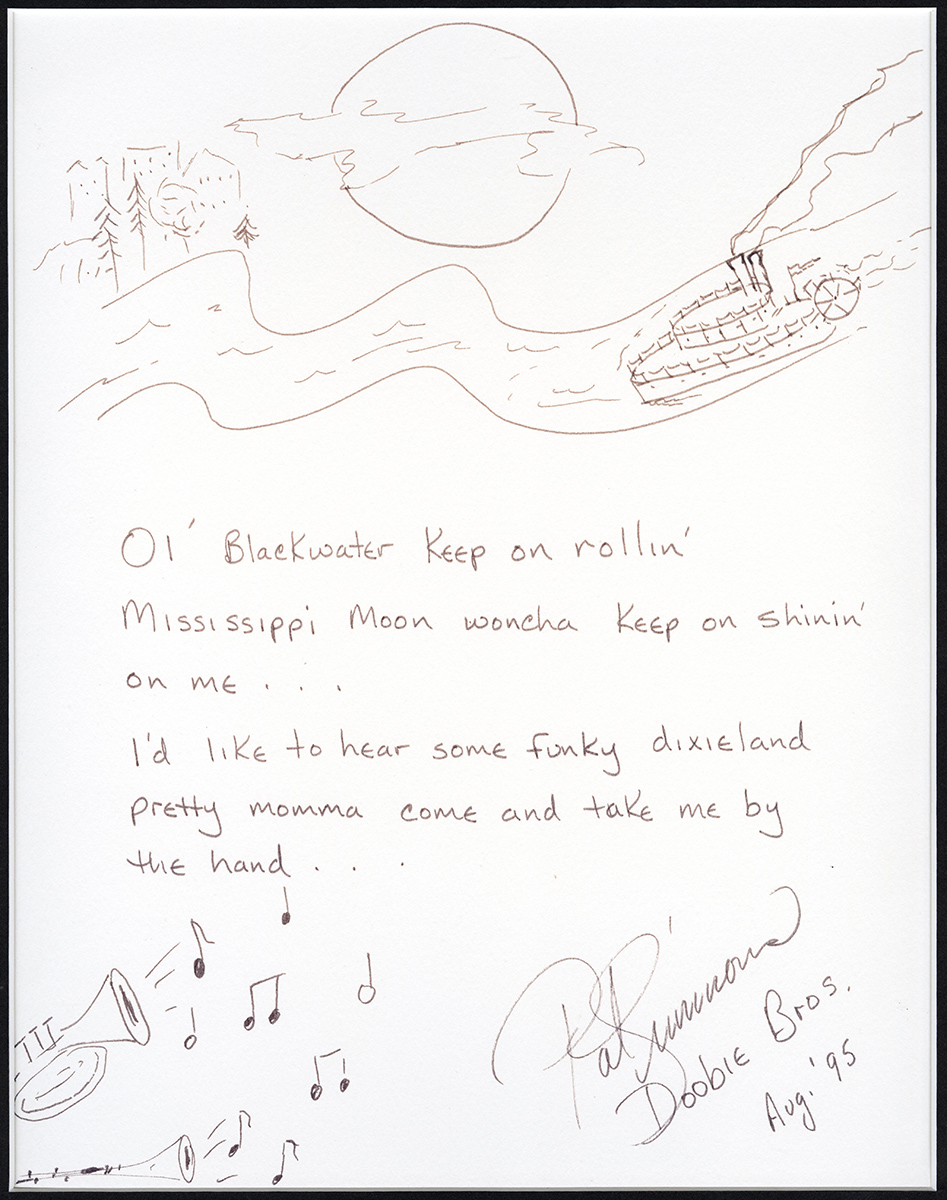 Ol' Blackwater Keep on rollin'
Mississippi Moon woncha Keep on shinin'
on me . . .
I'd like to hear some funky dixieland
pretty momma come and take me by
the hand . . .
Pat Simmons
Doobie Bros.
Aug. '95